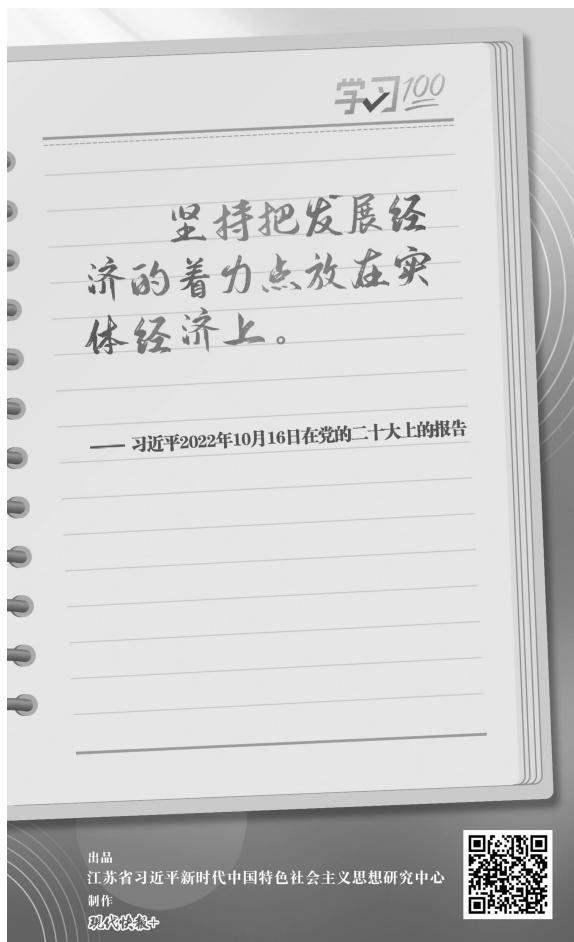 学习100
坚持把发展经
济的着力点放在实
体经济上。
—— 习近平2022年10月16日在党的二十大上的报告
出品
江苏省习近平新时代中国特色社会主义思想研究中心
制作
现代快报+